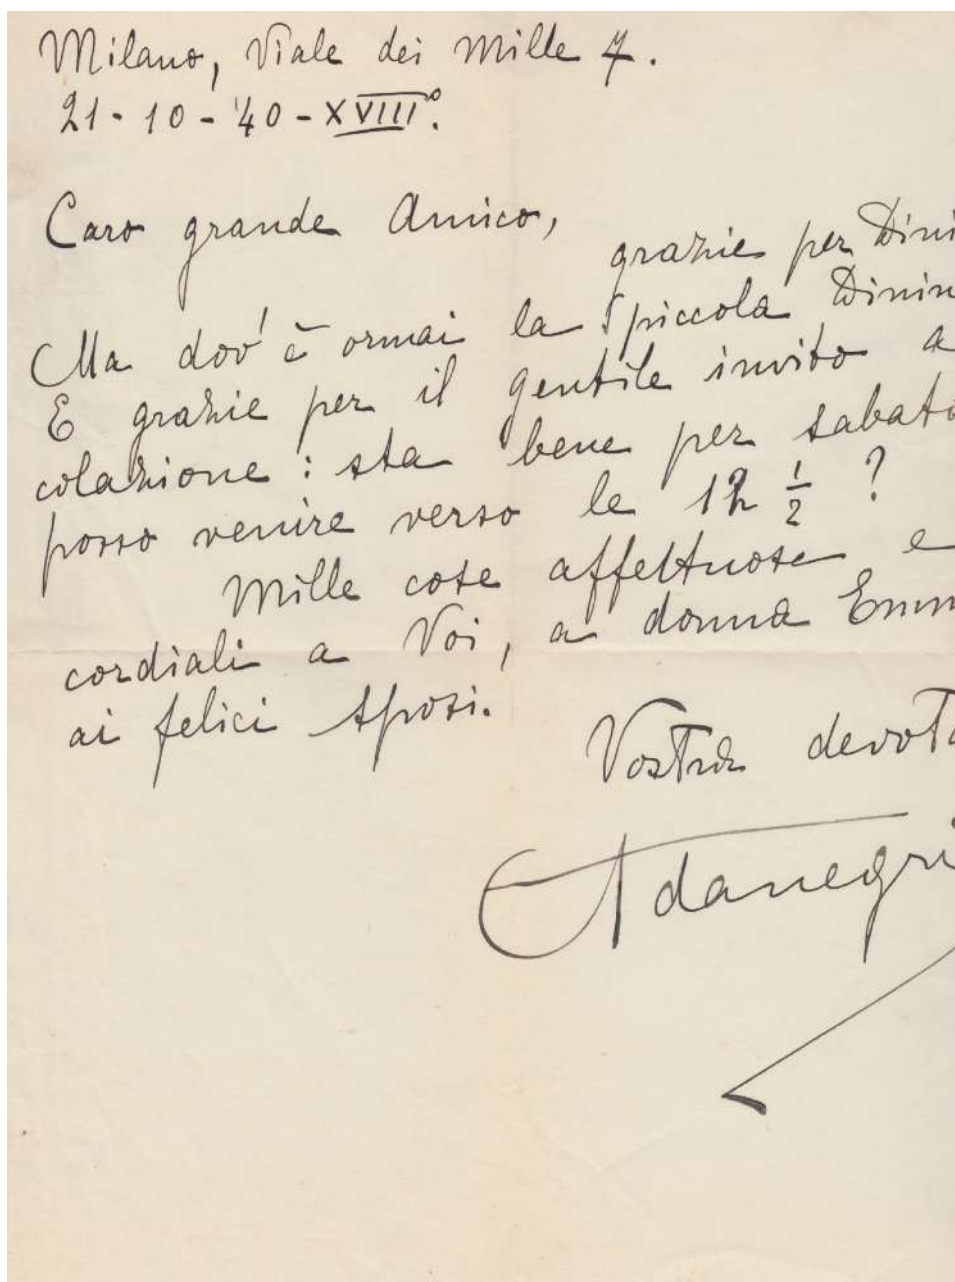 Milano, Viale dei Mille 7.
21-10-'40-XVIII°.
Caro grande Amico,
grazie per Dini
Ma dov'è ormai la piccola Dinin
E grazie per il gentile invito a
colazione: sta bene per sabato
posso venire verso le 12 ½ ?
Mille cose affettuose e
cordiali a Voi, a donna Emm
ai felici sposi.
Vostra devota
Adanegri